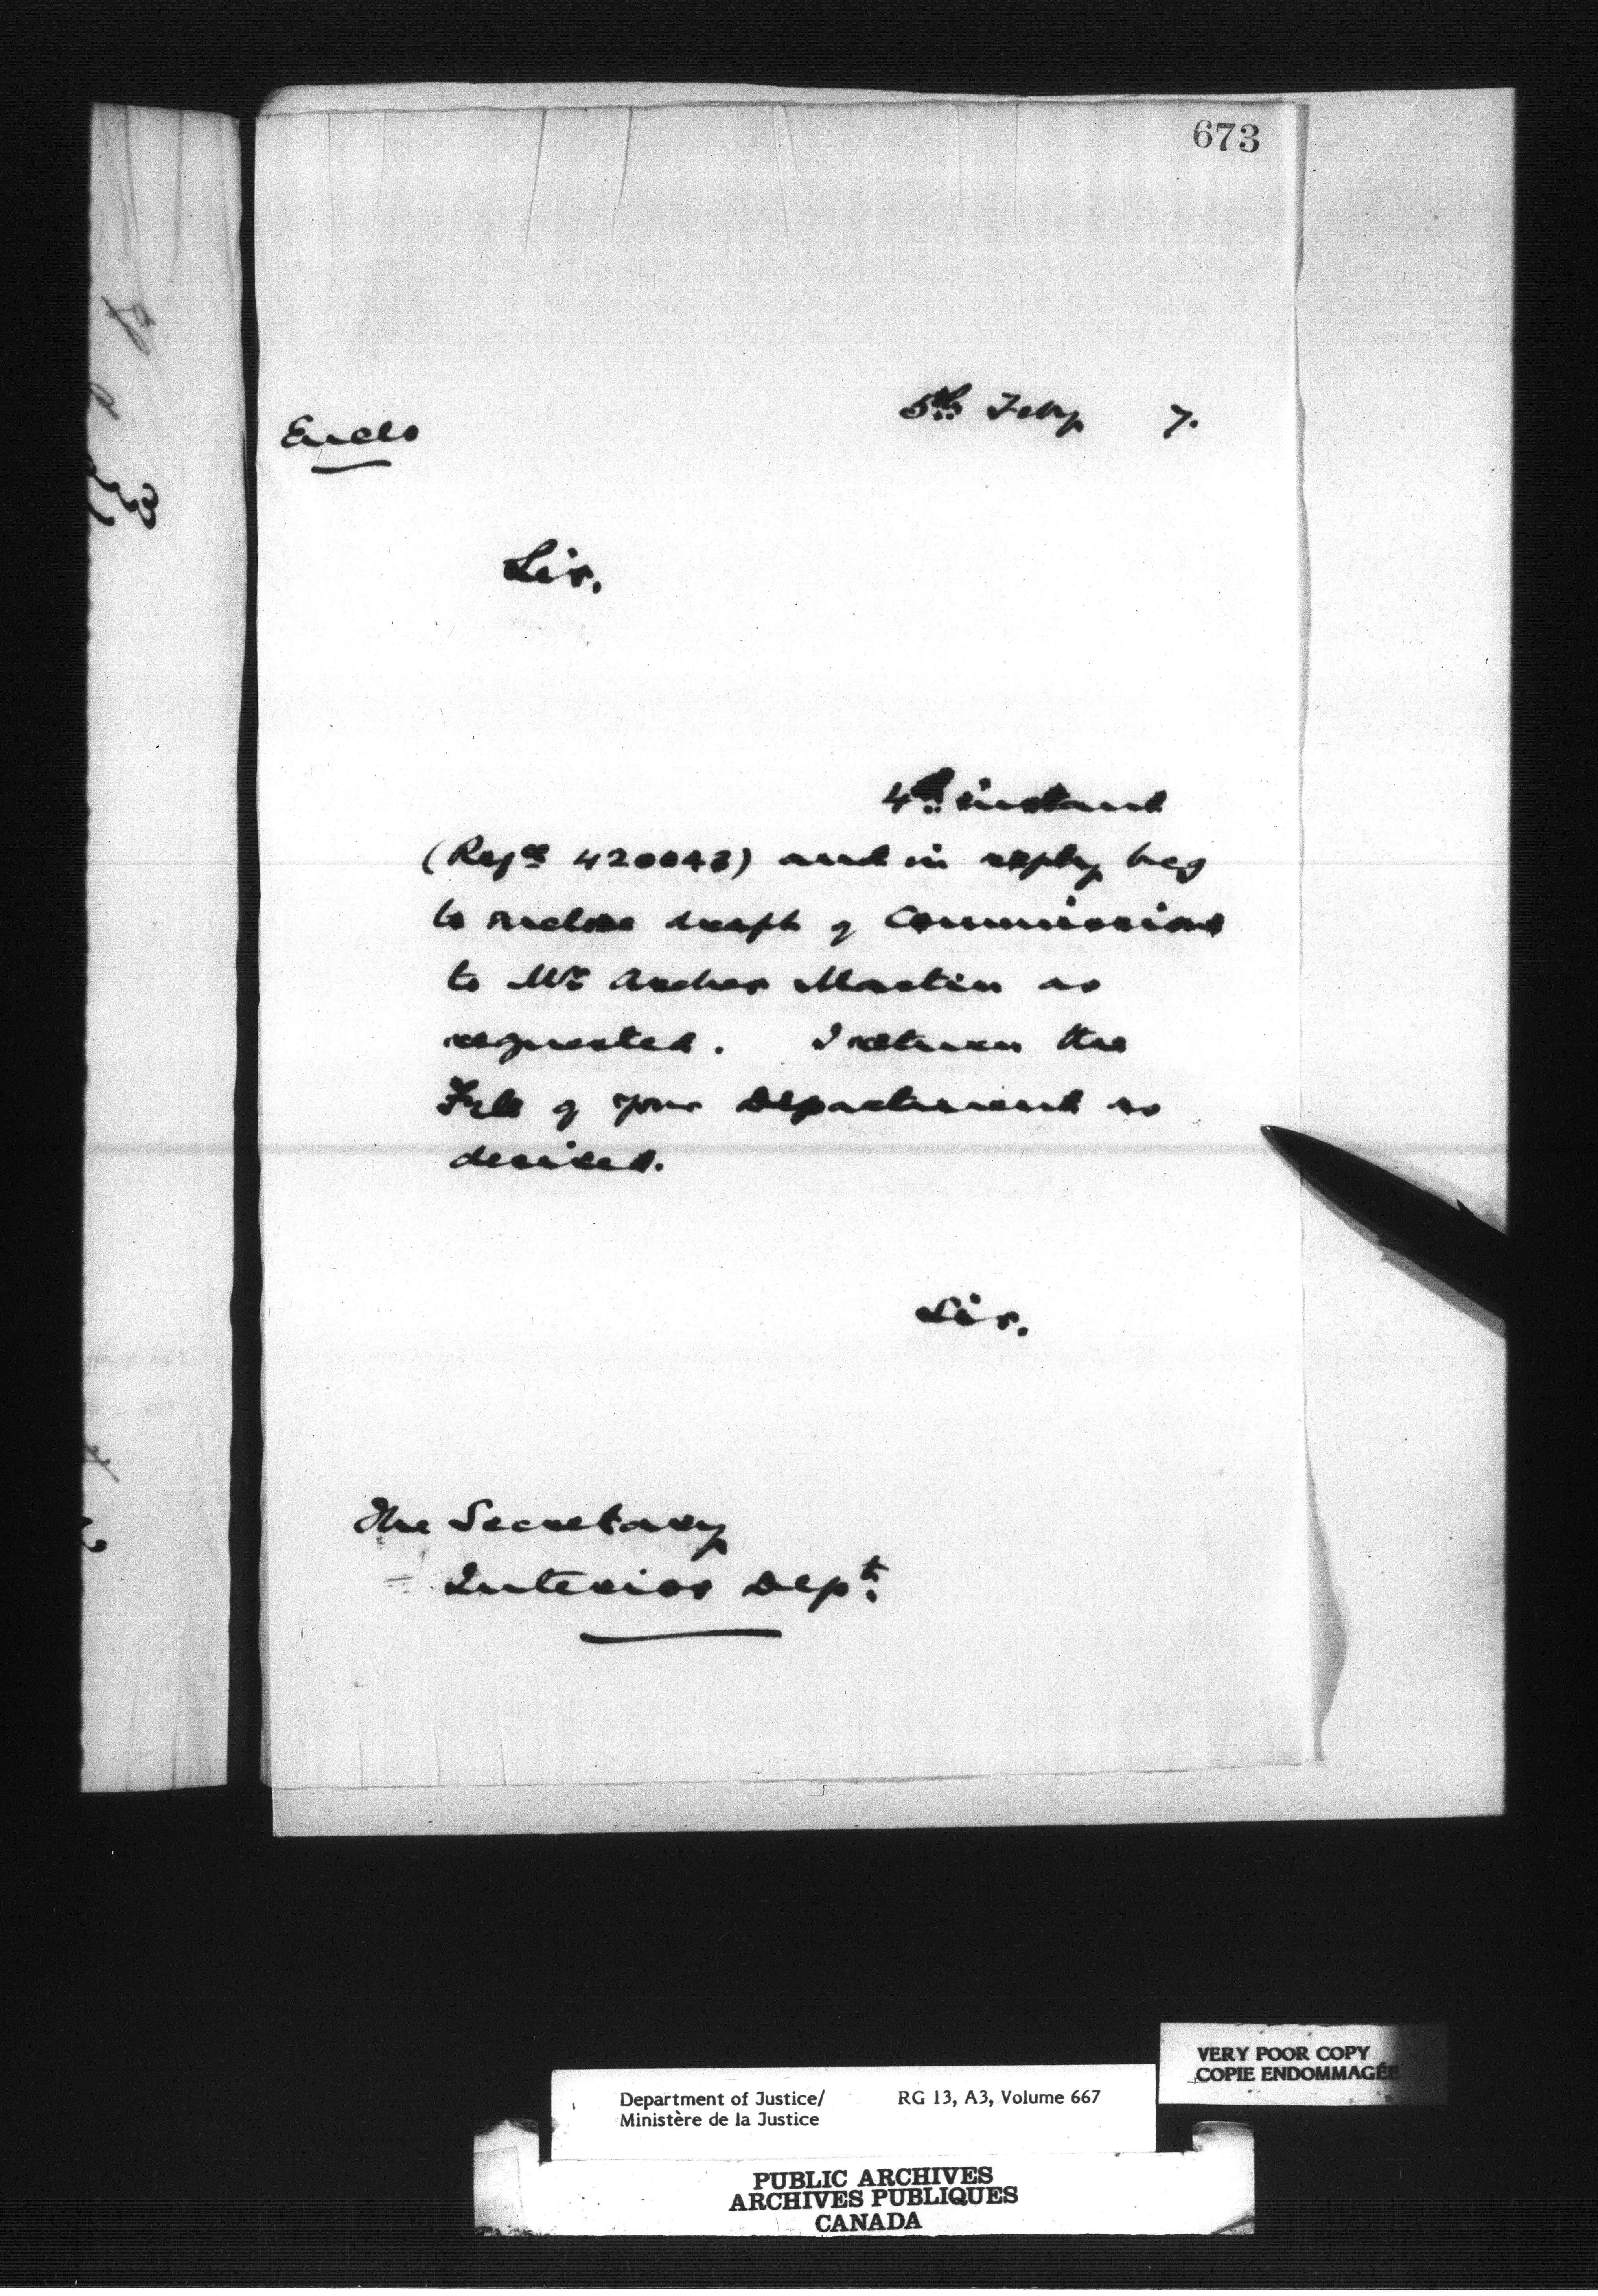 673
5th Feby 7.
Encls
Sir,
4th instant
(Refce 420043) and in reply beg
to enclose draft of Commissions
to Mr Archer Martin as
requested. I return the
Fyle of your Department as
desired.
Sir,
The Secretary
Interior Dept.
VERY POOR COPY
COPIE ENDOMMAGÉE
Department of Justice/ RG 13, A3, Volume 667
Ministère de la Justice
PUBLIC ARCHIVES
ARCHIVES PUBLIQUES
CANADA